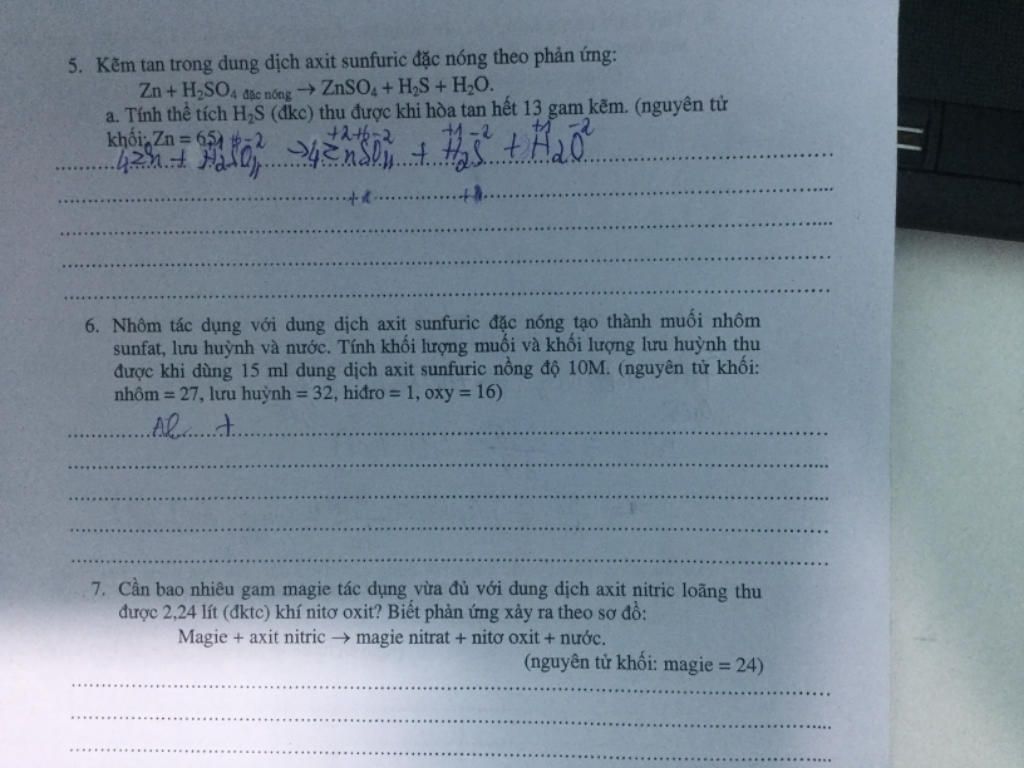 5. Kẽm tan trong dung dịch axit sunfuric đặc nóng theo phản ứng:
Zn + H₂SO₄ đặc nóng → ZnSO₄ + H₂S + H₂O.
a. Tính thể tích H₂S (đkc) thu được khi hòa tan hết 13 gam kẽm. (nguyên tử
khối: Zn = 65)
+1 +6 -2 +2 +6 -2 +1 -2 +1 -2
4Zn + H₂SO₄ → 4ZnSO₄ + H₂S + H₂O
6. Nhôm tác dụng với dung dịch axit sunfuric đặc nóng tạo thành muối nhôm
sunfat, lưu huỳnh và nước. Tính khối lượng muối và khối lượng lưu huỳnh thu
được khi dùng 15 ml dung dịch axit sunfuric nồng độ 10M. (nguyên tử khối:
nhôm = 27, lưu huỳnh = 32, hiđro = 1, oxy = 16)
Al +
7. Cần bao nhiêu gam magie tác dụng vừa đủ với dung dịch axit nitric loãng thu
được 2,24 lít (đktc) khí nitơ oxit? Biết phản ứng xảy ra theo sơ đồ:
Magie + axit nitric → magie nitrat + nitơ oxit + nước.
(nguyên tử khối: magie = 24)